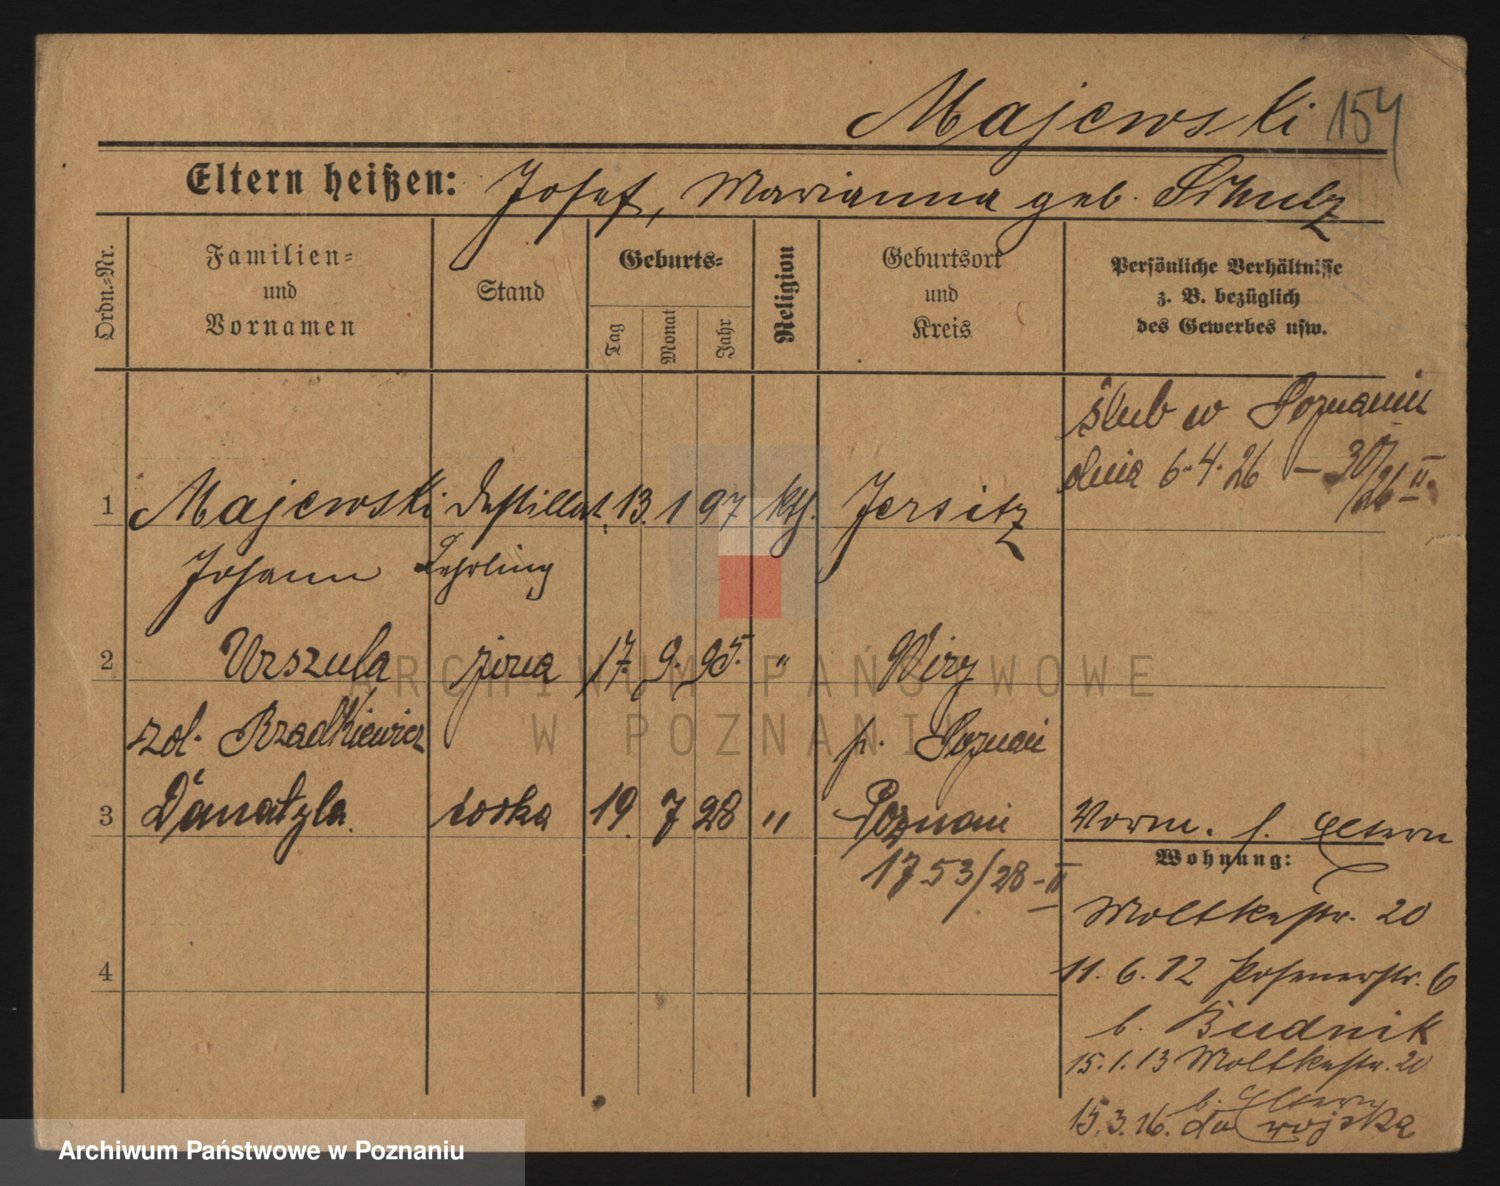 Majewski 154
Eltern heißen: Josef, Marianna geb. Schulz
Ordn.-Nr.
Familien-
und
Vornamen
Stand
Geburts-
Tag
Monat
Jahr
Religion
Geburtsort
und
Kreis
Persönliche Verhältnisse
z. B. bezüglich
des Gewerbes usw.
ślub w Poznaniu
dnia 6.4.26 – 307/26 II.
1 Majewski Destillat. 13. 1 97 kth. Jersitz
Johann Lehrling
2 Urszula żona 17. 9. 95. " Wiry
zd. Rzadkiewicz p. Poznań
3 Danatyla córka 19. 7 28 " Poznań
1753/28 - II
Vorm. s. Eltern
Wohnung:
Moltkestr. 20
4
11. 6. 12 Posenerstr. 6
b. Budnik
15. 1. 13 Moltkestr. 20
b. Eltern
15. 3. 16. do wojska
ARCHIWUM PAŃSTWOWE
W POZNANIU
Archiwum Państwowe w Poznaniu